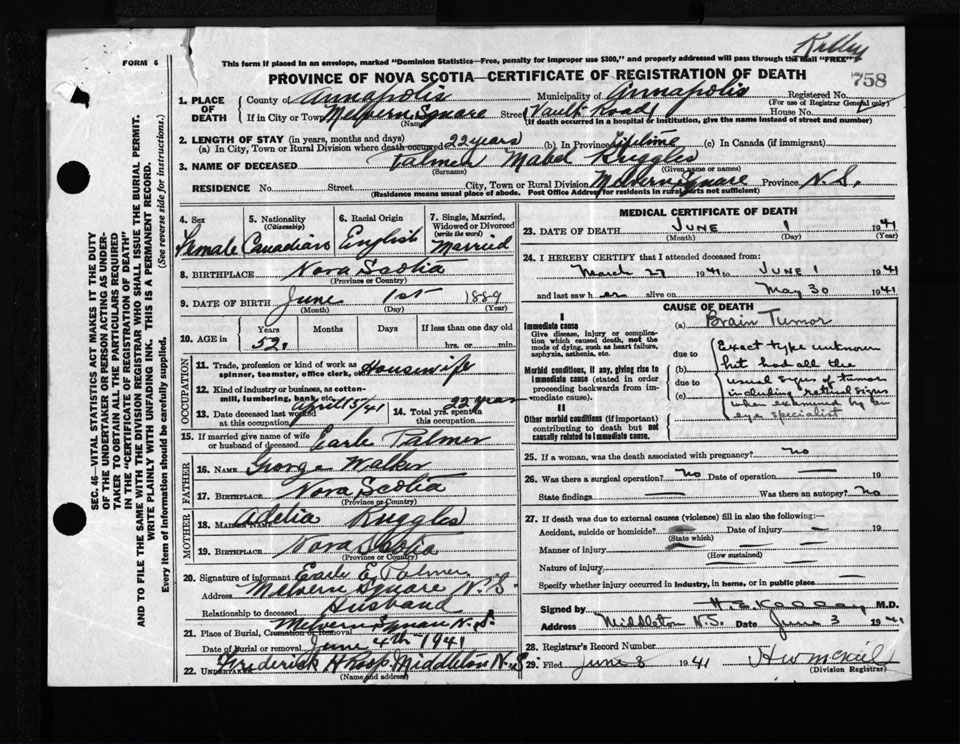 Kelley
FORM 6
This form if placed in an envelope, marked "Dominion Statistics—Free, penalty for improper use $300," and properly addressed will pass through the mail "FREE"
PROVINCE OF NOVA SCOTIA—CERTIFICATE OF REGISTRATION OF DEATH
758
1. PLACE OF DEATH County of Annapolis Municipality of Annapolis Registered No.
(For use of Registrar General only)
If in City or Town Melvern Square Street (Vault Road) House No.
(Name) (If death occurred in a hospital or institution, give the name instead of street and number)
2. LENGTH OF STAY (in years, months and days)
(a) In City, Town or Rural Division where death occurred 22 years (b) In Province Lifetime (c) In Canada (if immigrant)
3. NAME OF DECEASED Palmer Mabel Ruggles
(Surname) (Given name or names)
RESIDENCE No. Street City, Town or Rural Division Melvern Square Province N.S.
(Residence means usual place of abode. Post Office Address for residents in rural parts not sufficient)
4. Sex Female
5. Nationality (Citizenship) Canadian
6. Racial Origin English
7. Single, Married, Widowed or Divorced (write the word) Married
8. BIRTHPLACE Nova Scotia
(Province or Country)
9. DATE OF BIRTH June 1st 1889
(Month) (Day) (Year)
10. AGE in Years Months Days If less than one day old
52. hrs. or min.
OCCUPATION
11. Trade, profession or kind of work as spinner, teamster, office clerk, etc. Housewife
12. Kind of industry or business, as cotton-mill, lumbering, bank, etc.
13. Date deceased last worked at this occupation April 15/41
14. Total yrs. spent in this occupation 22 years
15. If married give name of wife or husband of deceased Earle Palmer
FATHER
16. NAME George Walker
17. BIRTHPLACE Nova Scotia
(Province or Country)
MOTHER
18. MAIDEN NAME Adelia Ruggles
19. BIRTHPLACE Nova Scotia
(Province or Country)
20. Signature of informant Earle E. Palmer
Address Melvern Square N.S.
Relationship to deceased Husband
21. Place of Burial, Cremation or Removal Melvern Square N.S.
Date of burial or removal June 4th 1941
22. UNDERTAKER Frederick Middleton N.S.
(Name and address)
MEDICAL CERTIFICATE OF DEATH
23. DATE OF DEATH June 1 1941
(Month) (Day) (Year)
24. I HEREBY CERTIFY that I attended deceased from:
March 27 1941 to June 1 1941
and last saw her alive on May 30 1941
CAUSE OF DEATH
I
Immediate cause
Give disease, injury or complication which caused death, not the mode of dying, such as heart failure, asphyxia, asthenia, etc.
(a) Brain Tumor
due to
Morbid conditions, if any, giving rise to immediate cause (stated in order proceeding backwards from immediate cause).
(b)
due to
(c)
Exact type unknown
but had all the
usual signs of tumor
including retinal signs
when examined by an
eye specialist
II
Other morbid conditions (if important) contributing to death but not causally related to immediate cause.
25. If a woman, was the death associated with pregnancy? No
26. Was there a surgical operation? No Date of operation — 19
State findings — Was there an autopsy? No
27. If death was due to external causes (violence) fill in also the following:—
Accident, suicide or homicide? Date of injury — 19
(State which)
Manner of injury —
(How sustained)
Nature of injury —
Specify whether injury occurred in industry, in home, or in public place
Signed by H.E. Kelley M.D.
Address Middleton N.S. Date June 3 1941
28. Registrar's Record Number
29. Filed June 3 1941
(Division Registrar)
SEC. 46—VITAL STATISTICS ACT MAKES IT THE DUTY
OF THE UNDERTAKER OR PERSON ACTING AS UNDER-
TAKER TO OBTAIN ALL THE PARTICULARS REQUIRED
IN THE "CERTIFICATE OF REGISTRATION OF DEATH"
AND TO FILE THE SAME WITH THE DIVISION REGISTRAR WHO SHALL ISSUE THE BURIAL PERMIT.
WRITE PLAINLY WITH UNFADING INK. THIS IS A PERMANENT RECORD.
Every item of information should be carefully supplied. (See reverse side for instructions.)